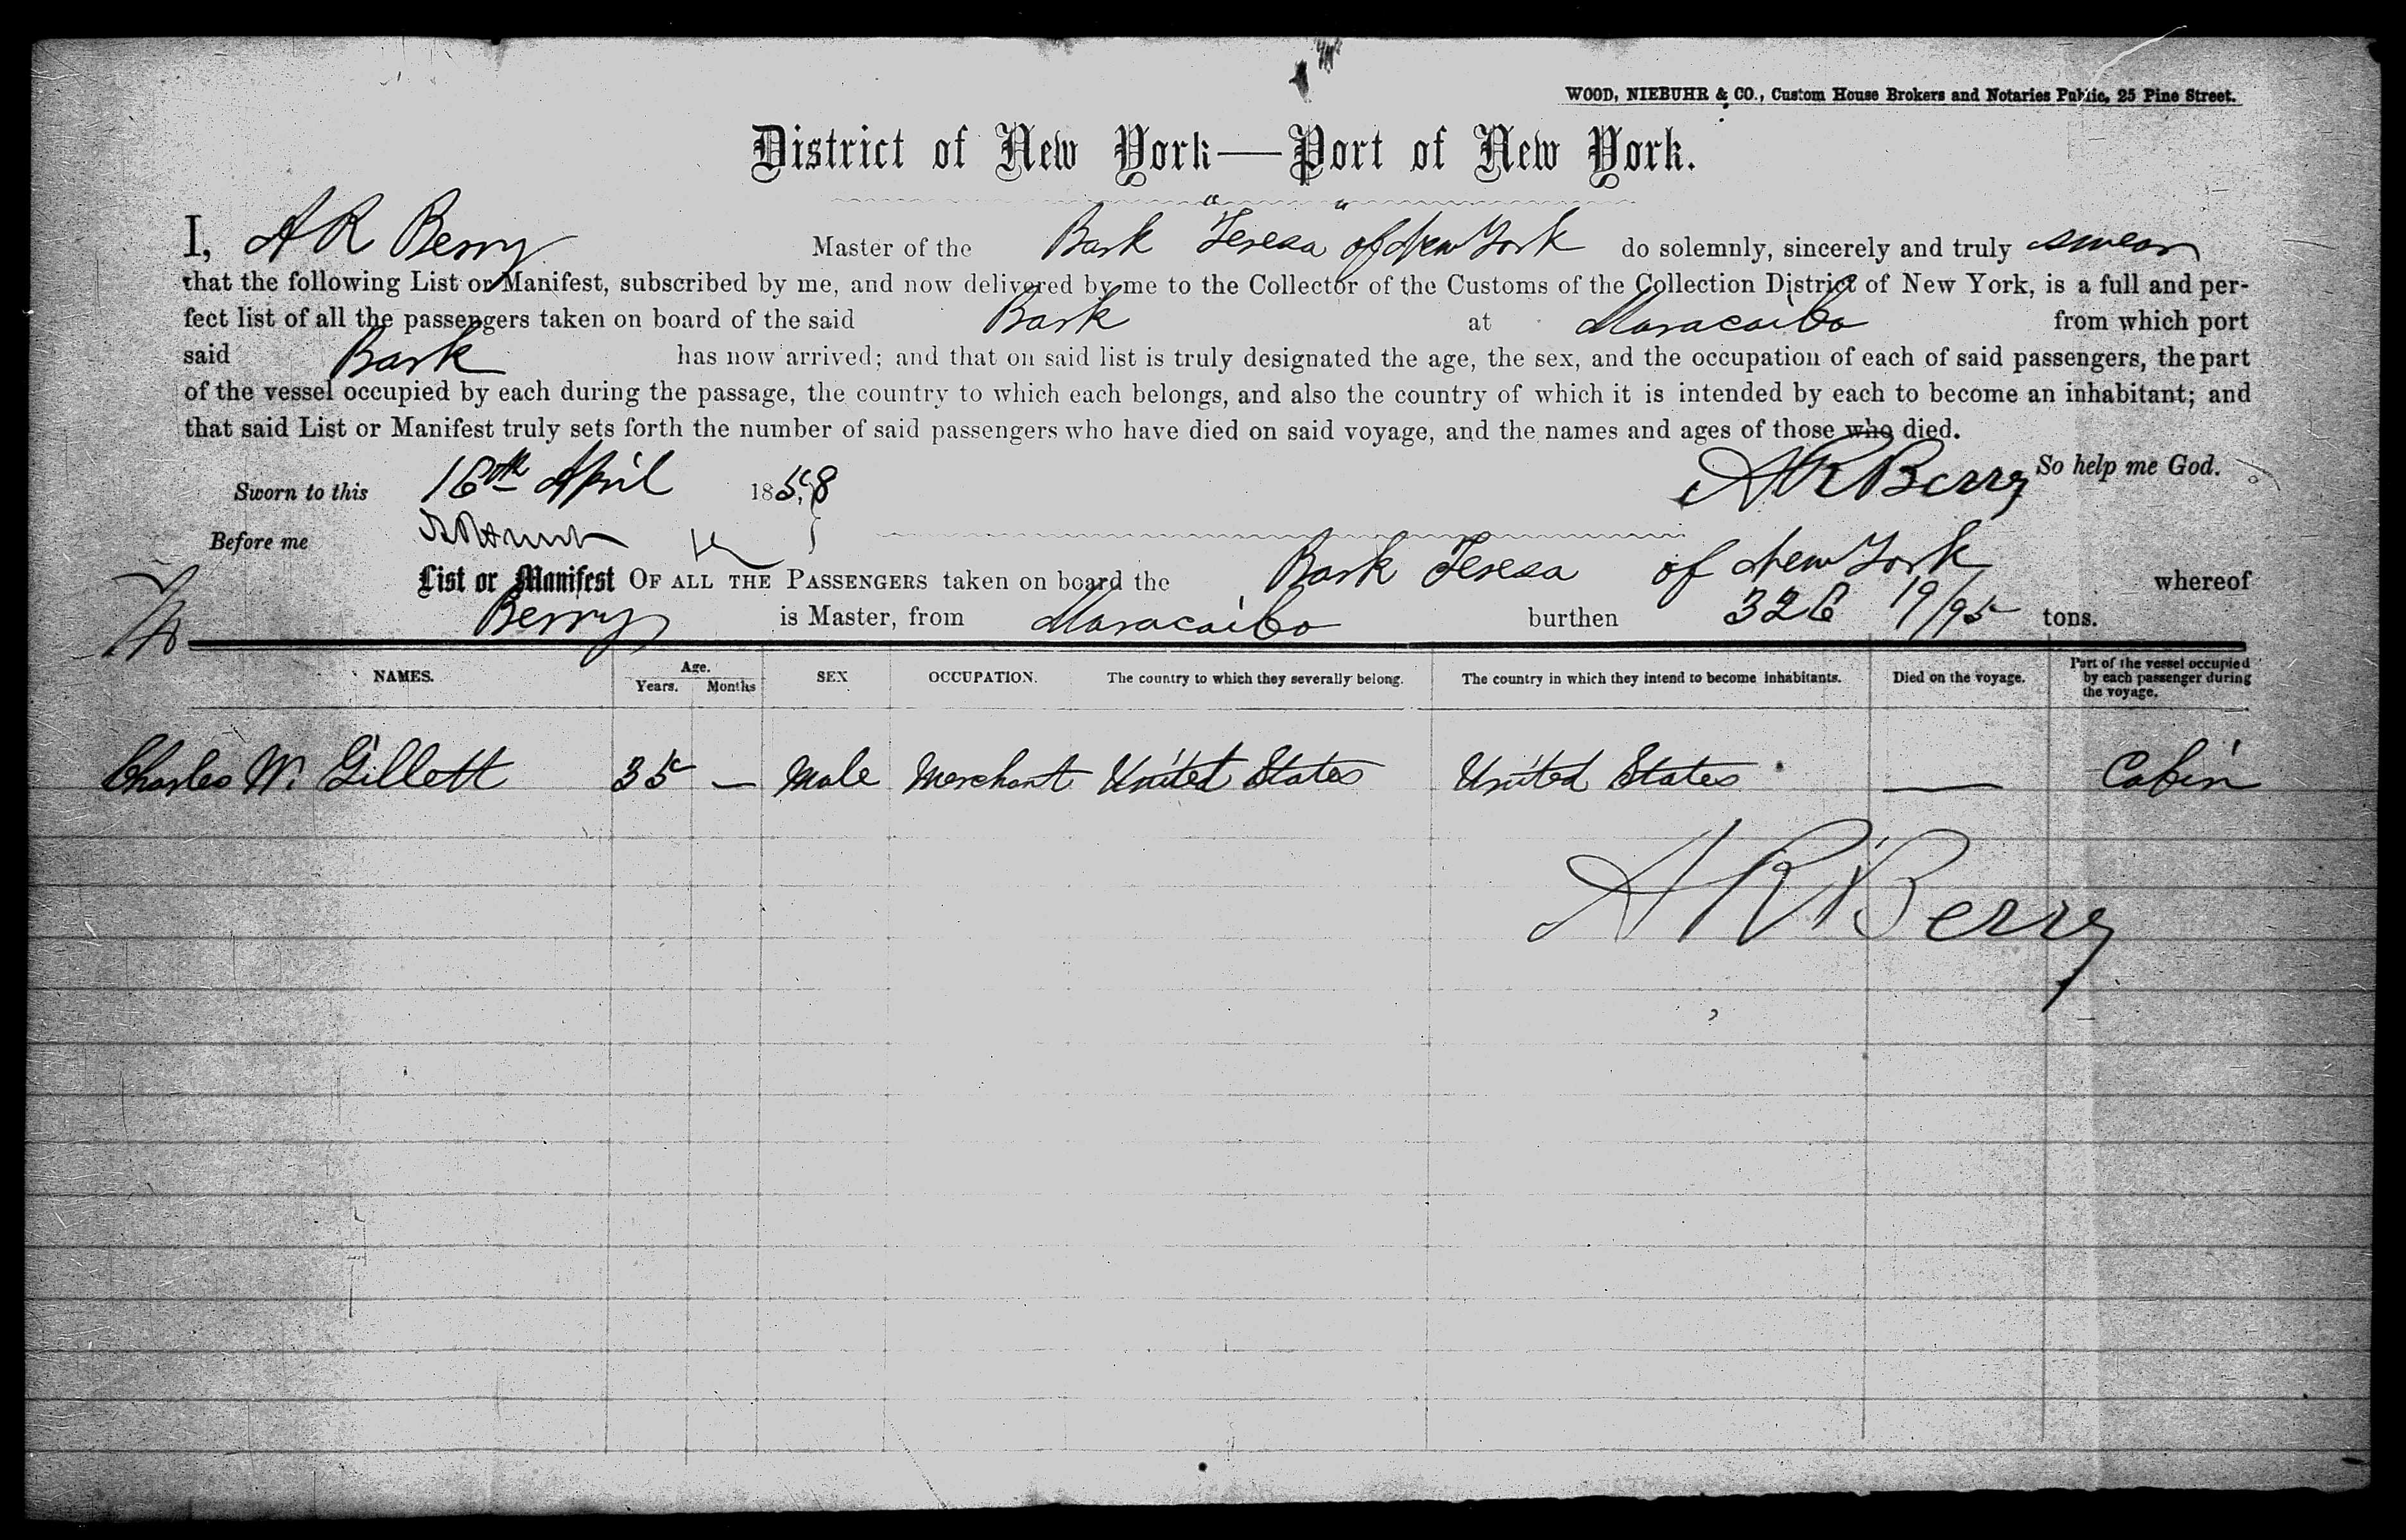 WOOD, NIEBUHR & CO., Custom House Brokers and Notaries Public, 25 Pine Street.
District of New York—Port of New York.
I, A R Berry Master of the Bark Teresa of New York do solemnly, sincerely and truly swear
that the following List or Manifest, subscribed by me, and now delivered by me to the Collector of the Customs of the Collection District of New York, is a full and per-
fect list of all the passengers taken on board of the said Bark at Maracaibo from which port
said Bark has now arrived; and that on said list is truly designated the age, the sex, and the occupation of each of said passengers, the part
of the vessel occupied by each during the passage, the country to which each belongs, and also the country of which it is intended by each to become an inhabitant; and
that said List or Manifest truly sets forth the number of said passengers who have died on said voyage, and the names and ages of those who died.
So help me God.
Sworn to this 16th April 1858 A R Berry
Before me
List or Manifest OF ALL THE PASSENGERS taken on board the Bark Teresa of New York whereof
Berry is Master, from Maracaibo burthen 326 19/95 tons.
NAMES. Age. Years. Months SEX OCCUPATION. The country to which they severally belong. The country in which they intend to become inhabitants. Died on the voyage. Part of the vessel occupied by each passenger during the voyage.
Charles W. Gillett 35 — Male Merchant United States United States — Cabin
A R Berry